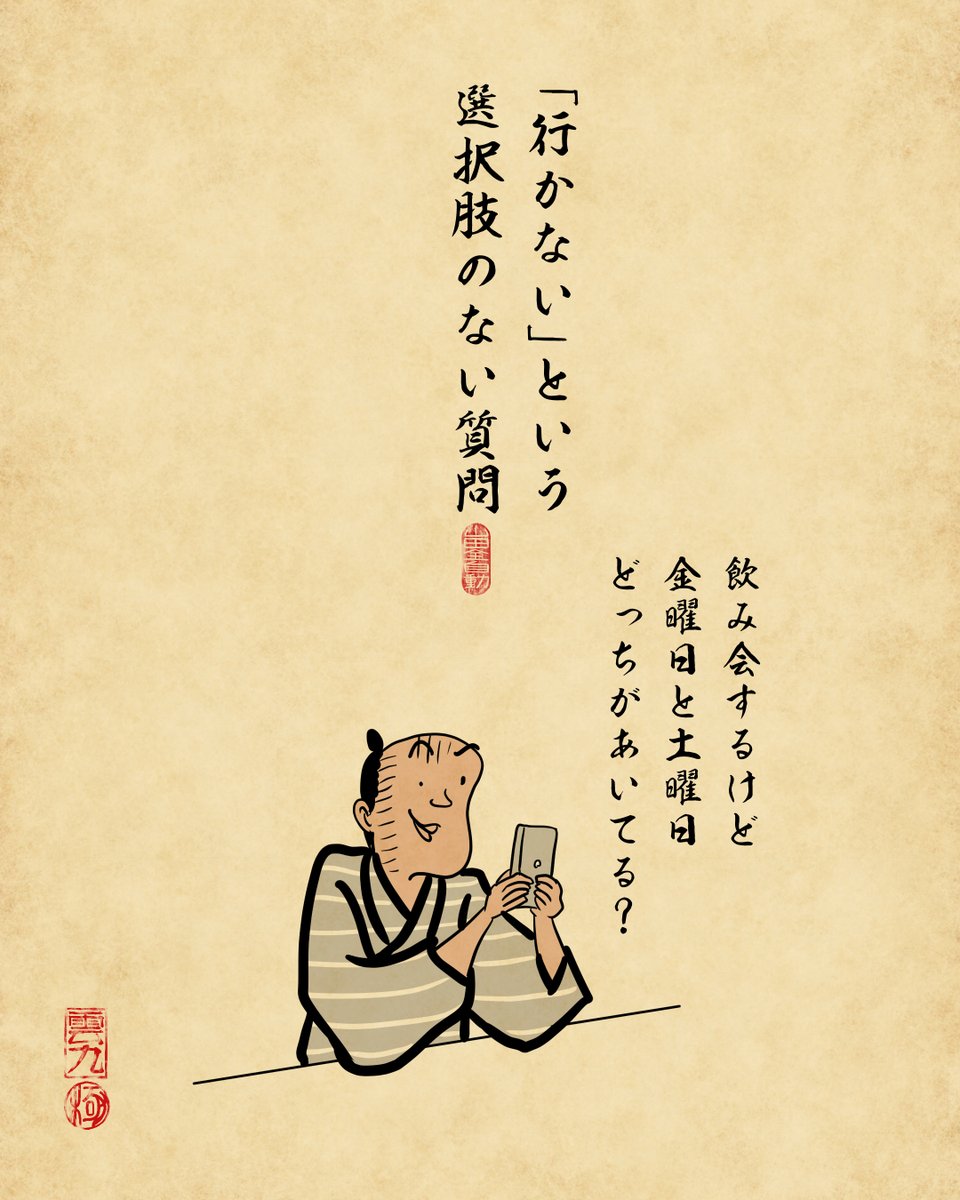 「行かない」という
選択肢のない質問
飲み会するけど
金曜日と土曜日
どっちがあいてる？